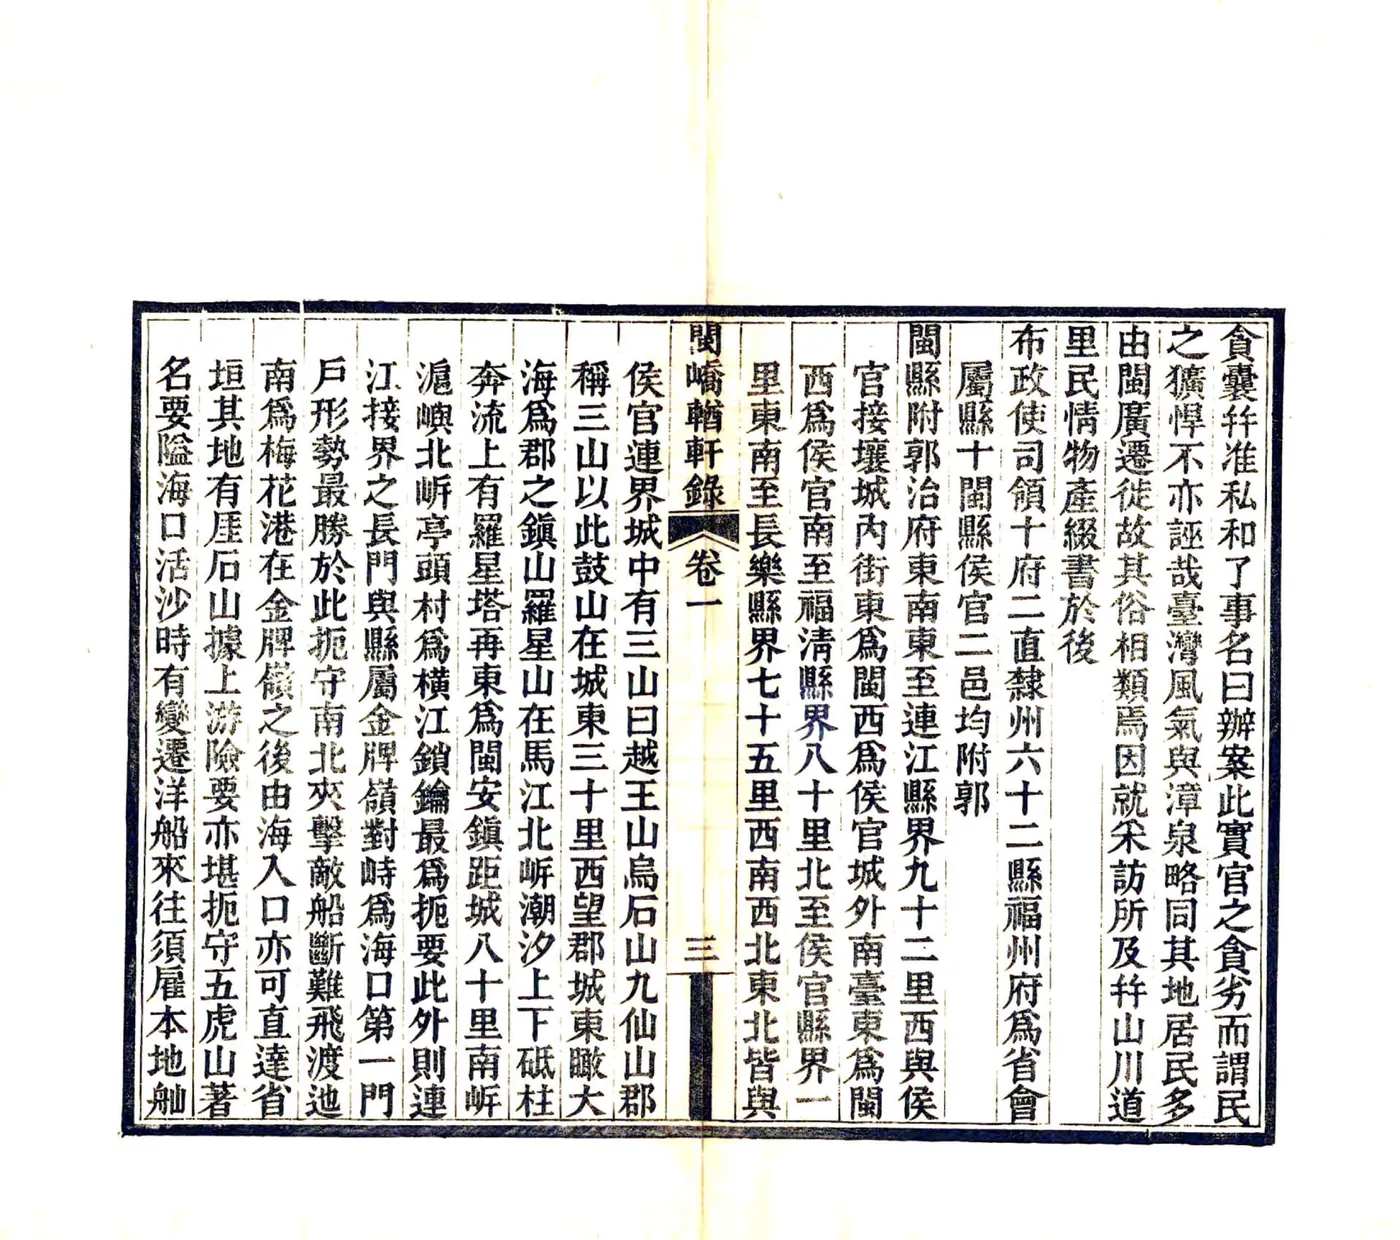 貪囊幷准私和了事名曰辦案此實官之貪劣而謂民
之獷悍不亦誣哉臺灣風氣與漳泉略同其地居民多
由閩廣遷徙故其俗相類焉因就采訪所及幷山川道
里民情物產綴書於後
布政使司領十府二直隸州六十二縣福州府爲省會
屬縣十閩縣侯官二邑均附郭
閩縣附郭治府東南東至連江縣界九十二里西與侯
官接壤城內街東爲閩西爲侯官城外南臺東爲閩
西爲侯官南至福淸縣界八十里北至侯官縣界一
里東南至長樂縣界七十五里西南西北東北皆與
閩嶠輶軒錄 卷一 三
侯官連界城中有三山曰越王山烏石山九仙山郡
稱三山以此鼓山在城東三十里西望郡城東瞰大
海爲郡之鎭山羅星山在馬江北岍潮汐上下砥柱
奔流上有羅星塔再東爲閩安鎭距城八十里南岍
滬嶼北岍亭頭村爲橫江鎖鑰最爲扼要此外則連
江接界之長門與縣屬金牌嶺對峙爲海口第一門
戶形勢最勝於此扼守南北夾擊敵船斷難飛渡迆
南爲梅花港在金牌嶺之後由海入口亦可直達省
垣其地有厓石山據上游險要亦堪扼守五虎山著
名要隘海口活沙時有變遷洋船來往須雇本地舢